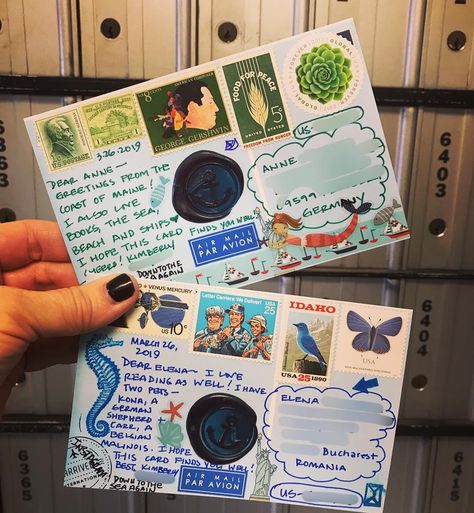 U.S. POSTAGE
8c
UNITED STATES
GEORGE GERSHWIN
FOOD FOR PEACE
5c
FREEDOM FROM HUNGER
FOREVER
GLOBAL
3.26.2019
DEAR ANNE-
GREETINGS FROM THE
COAST OF MAINE!
I ALSO LOVE
BOOKS, THE SEA,
BEACH AND SHIPS
I HOPE THIS CARD FINDS YOU WELL!
CHEERS! KIMBERLY
DOWNTOTHE
SEAAGAIN
AIR MAIL
PAR AVION
US-
ANNE
49599
GERMANY
VENUS MERCURY
US
10c
Letter Carriers: We Deliver!
USA
25
IDAHO
USA 25 1890
USA
MARCH 26,
2019
DEAR ELENA- I LOVE
READING AS WELL! I HAVE
TWO PETS-
KONA, A
GERMAN
SHEPHERD +
CARL, A
BELGIAN
MALINOIS. I HOPE
THIS CARD FINDS YOU WELL!
BEST, KIMBERLY
DOWNTOTHE
SEAAGAIN
AIR MAIL
PAR AVION
ELENA
BUCHAREST
ROMANIA
US-
6402
6403
6404
6
6